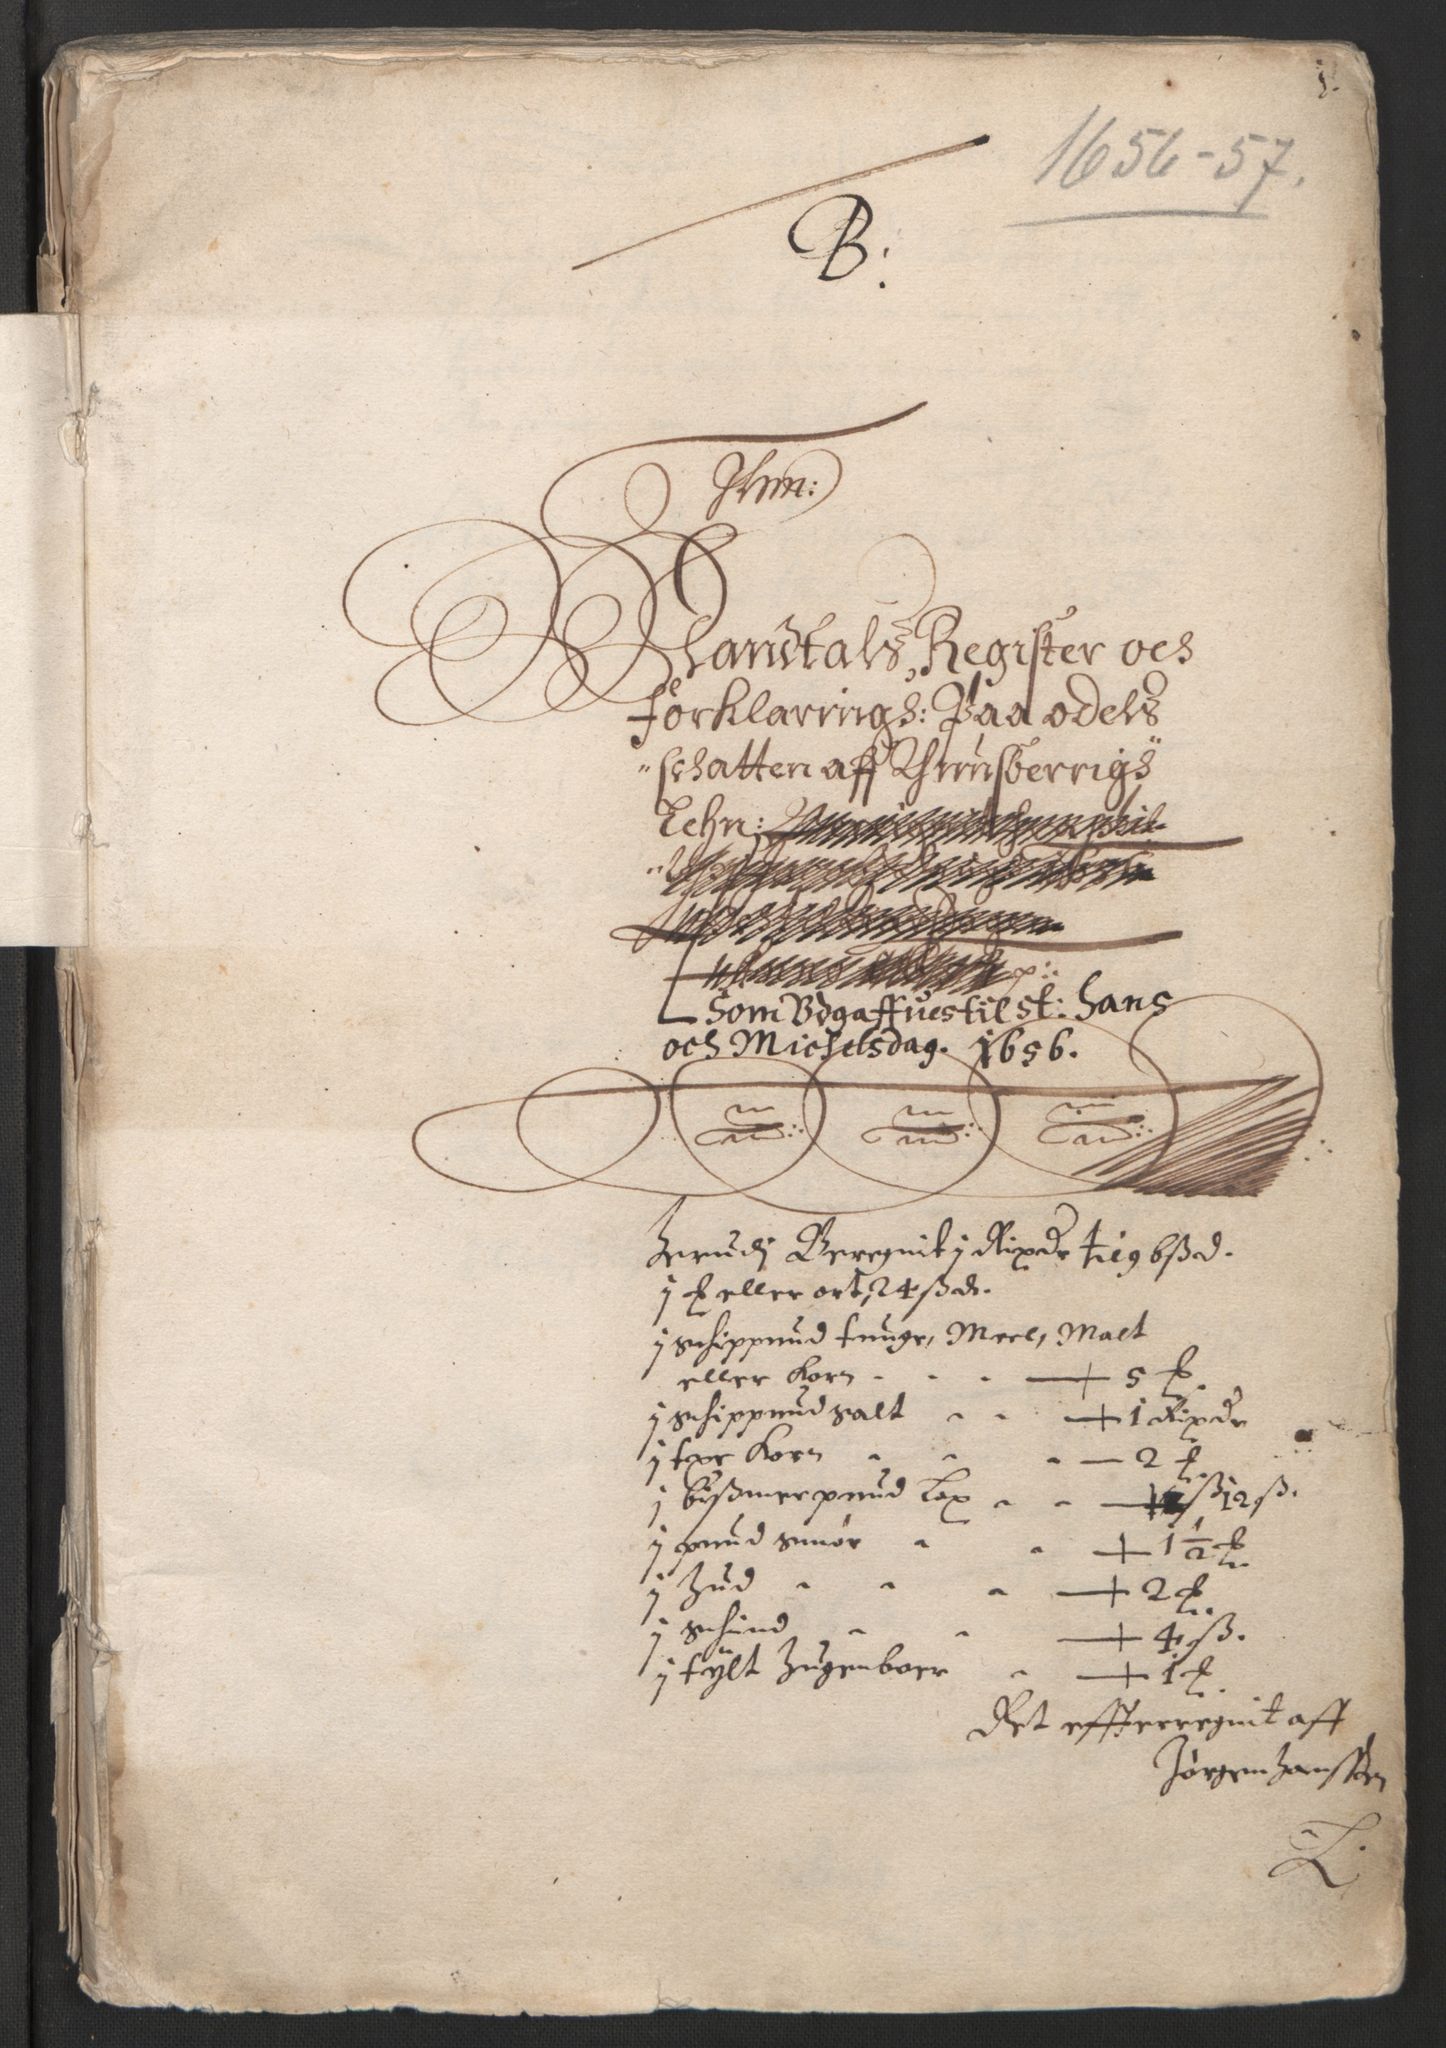 1.
1656-57.
B:
Jhm:
Mandtals Register och
forklarings: Paa odels
"schatten aff Thunsberrigs"
Lehn:
Som Udgaffues til St: Hans
och Michelsdag. 1656.
Herudj Beregnit j Rixdr til 96 ß d.
j # eller ort, 24 ß d.
j schippund tunge, Meel, Malt
eller Korn - - - 5 #.
j schippund salt - - 1 Rixdr
j tøe Korn - - - 2 #.
j bißmerpund Lax - - ß 12 ß.
j pund smør - - 1½ #.
j Hud - - - 2 #.
j schind - - 4 ß.
j tylt Hugenboer - 1 #.
Det effterregnit aff
Jørgen Hanssøn
L.